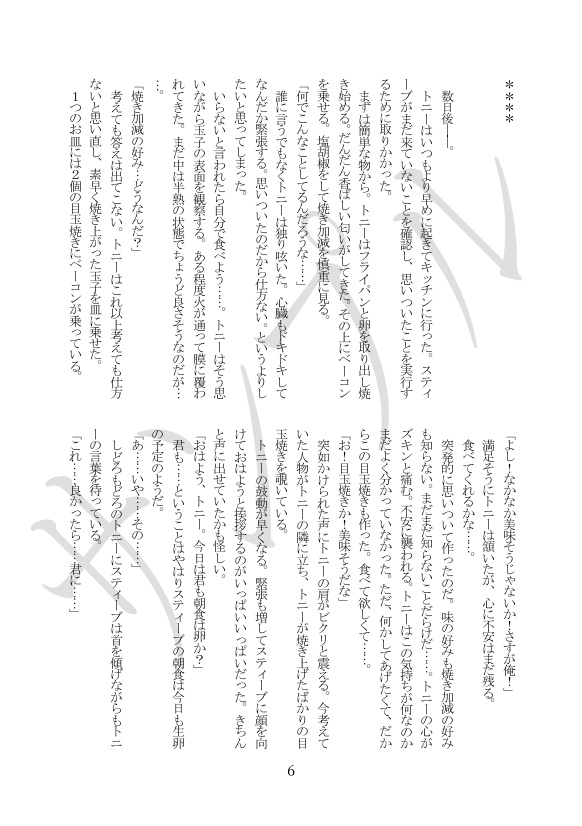 ＊＊＊＊
数日後――。
トニーはいつもより早めに起きてキッチンに行った。スティ
ーブがまだ来ていないことを確認し、思いついたことを実行す
るために取りかかった。
まずは簡単な物から。トニーはフライパンと卵を取り出し焼
き始める。だんだん香ばしい匂いがしてきた。その上にベーコン
を乗せる。塩胡椒をして焼き加減を慎重に見る。
「何でこんなことしてるんだろうな……」
誰に言うでもなくトニーは独り呟いた。心臓もドキドキして
なんだか緊張する。思いついたのだから仕方ない。というよりし
たいと思ってしまった。
いらないと言われたら自分で食べよう……。トニーはそう思
いながら玉子の表面を観察する。ある程度火が通って膜に覆わ
れてきた。まだ中は半熟の状態でちょうど良さそうなのだが…
…。
「焼き加減の好み…どうなんだ？」
考えても答えは出てこない。トニーはこれ以上考えても仕方
ないと思い直し、素早く焼き上がった玉子を皿に乗せた。
１つのお皿には２個の目玉焼きにベーコンが乗っている。
「よし！なかなか美味そうじゃないか！さすが俺！」
満足そうにトニーは頷いたが、心に不安はまだ残る。
食べてくれるかな……。
突発的に思いついて作ったのだ。味の好みも焼き加減の好み
も知らない。まだまだ知らないことだらけだ……。トニーの心が
ズキンと痛む。不安に襲われる。トニーはこの気持ちが何なのか
まだよく分かっていなかった。ただ、何かしてあげたくて、だか
らこの目玉焼きも作った。食べて欲しくて……。
「お！目玉焼きか！美味そうだな」
突如かけられた声にトニーの肩がビクリと震える。今考えて
いた人物がトニーの隣に立ち、トニーが焼き上げたばかりの目
玉焼きを覗いている。
トニーの鼓動が早くなる。緊張も増してスティーブに顔を向
けておはようと挨拶するのがいっぱいいっぱいだった。きちん
と声に出せていたかも怪しい。
「おはよう、トニー。今日は君も朝食は卵か？」
君も……ということはやはりスティーブの朝食は今日も生卵
の予定のようだ。
「あ……いや……その……」
しどろもどろのトニーにスティーブは首を傾げながらもトニ
ーの言葉を待っている。
「これ……良かったら……君に……」
6
サンプル